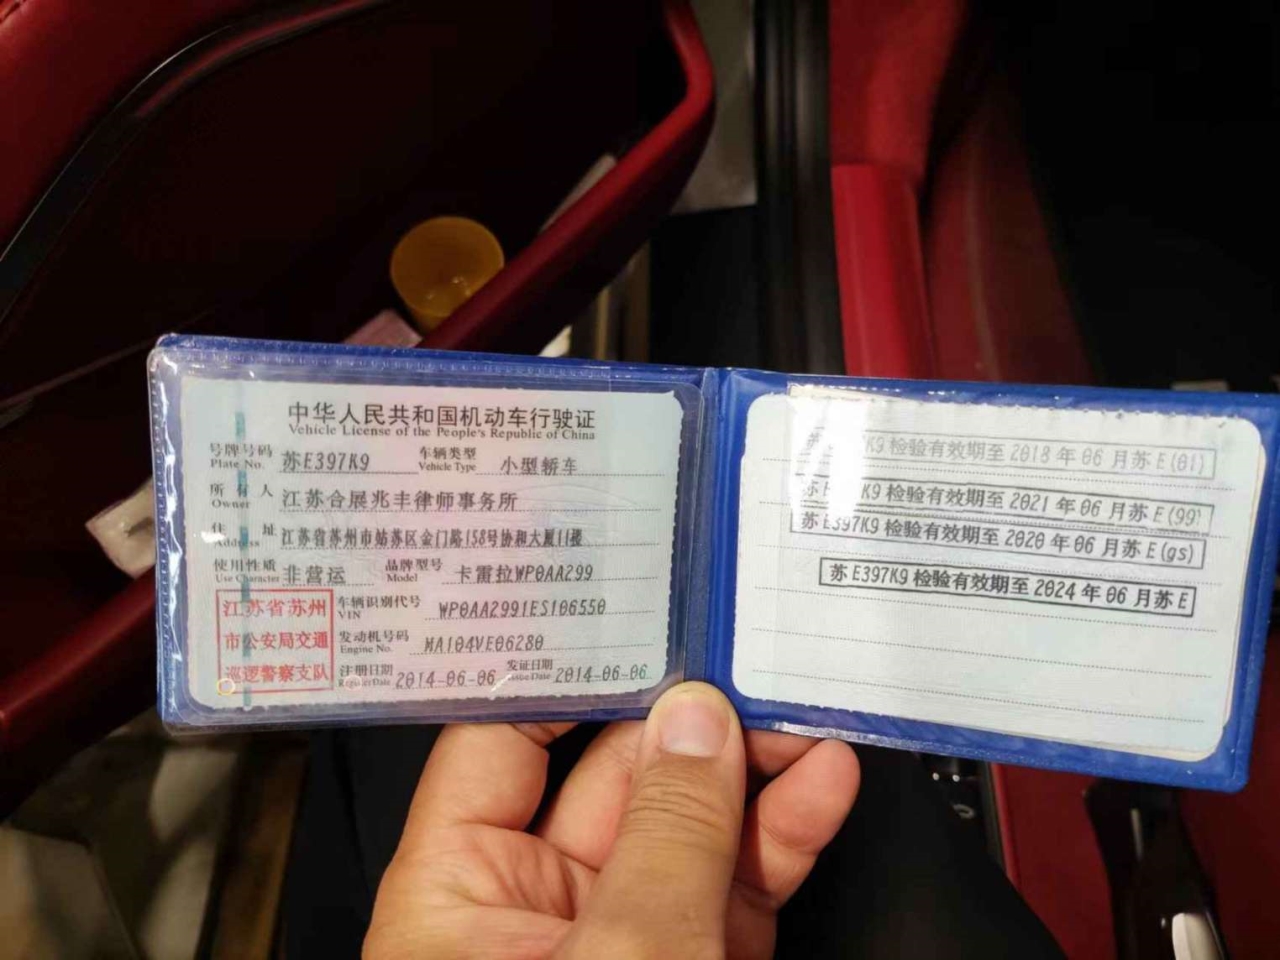 中华人民共和国机动车行驶证
Vehicle License of the People's Republic of China
号牌号码 苏E397K9 车辆类型 小型轿车
Plate No. Vehicle Type
所有人 江苏合展兆丰律师事务所
Owner
住址 江苏省苏州市姑苏区金门路158号协和大厦11楼
Address
使用性质 非营运 品牌型号 卡雷拉WP0AA299
Use Character Model
江苏省苏州
市公安局交通
巡逻警察支队
车辆识别代号 WP0AA2991ES106550
VIN
发动机号码 MA104VE06280
Engine No.
注册日期 2014-06-06 发证日期 2014-06-06
Register Date Issue Date
苏 K9 检验有效期至 2018 年 06 月苏 E(01)
苏E K9 检验有效期至 2021 年 06 月苏 E(99)
苏 E397K9 检验有效期至 2020 年 06 月苏 E(gs)
苏 E397K9 检验有效期至 2024 年 06 月苏 E